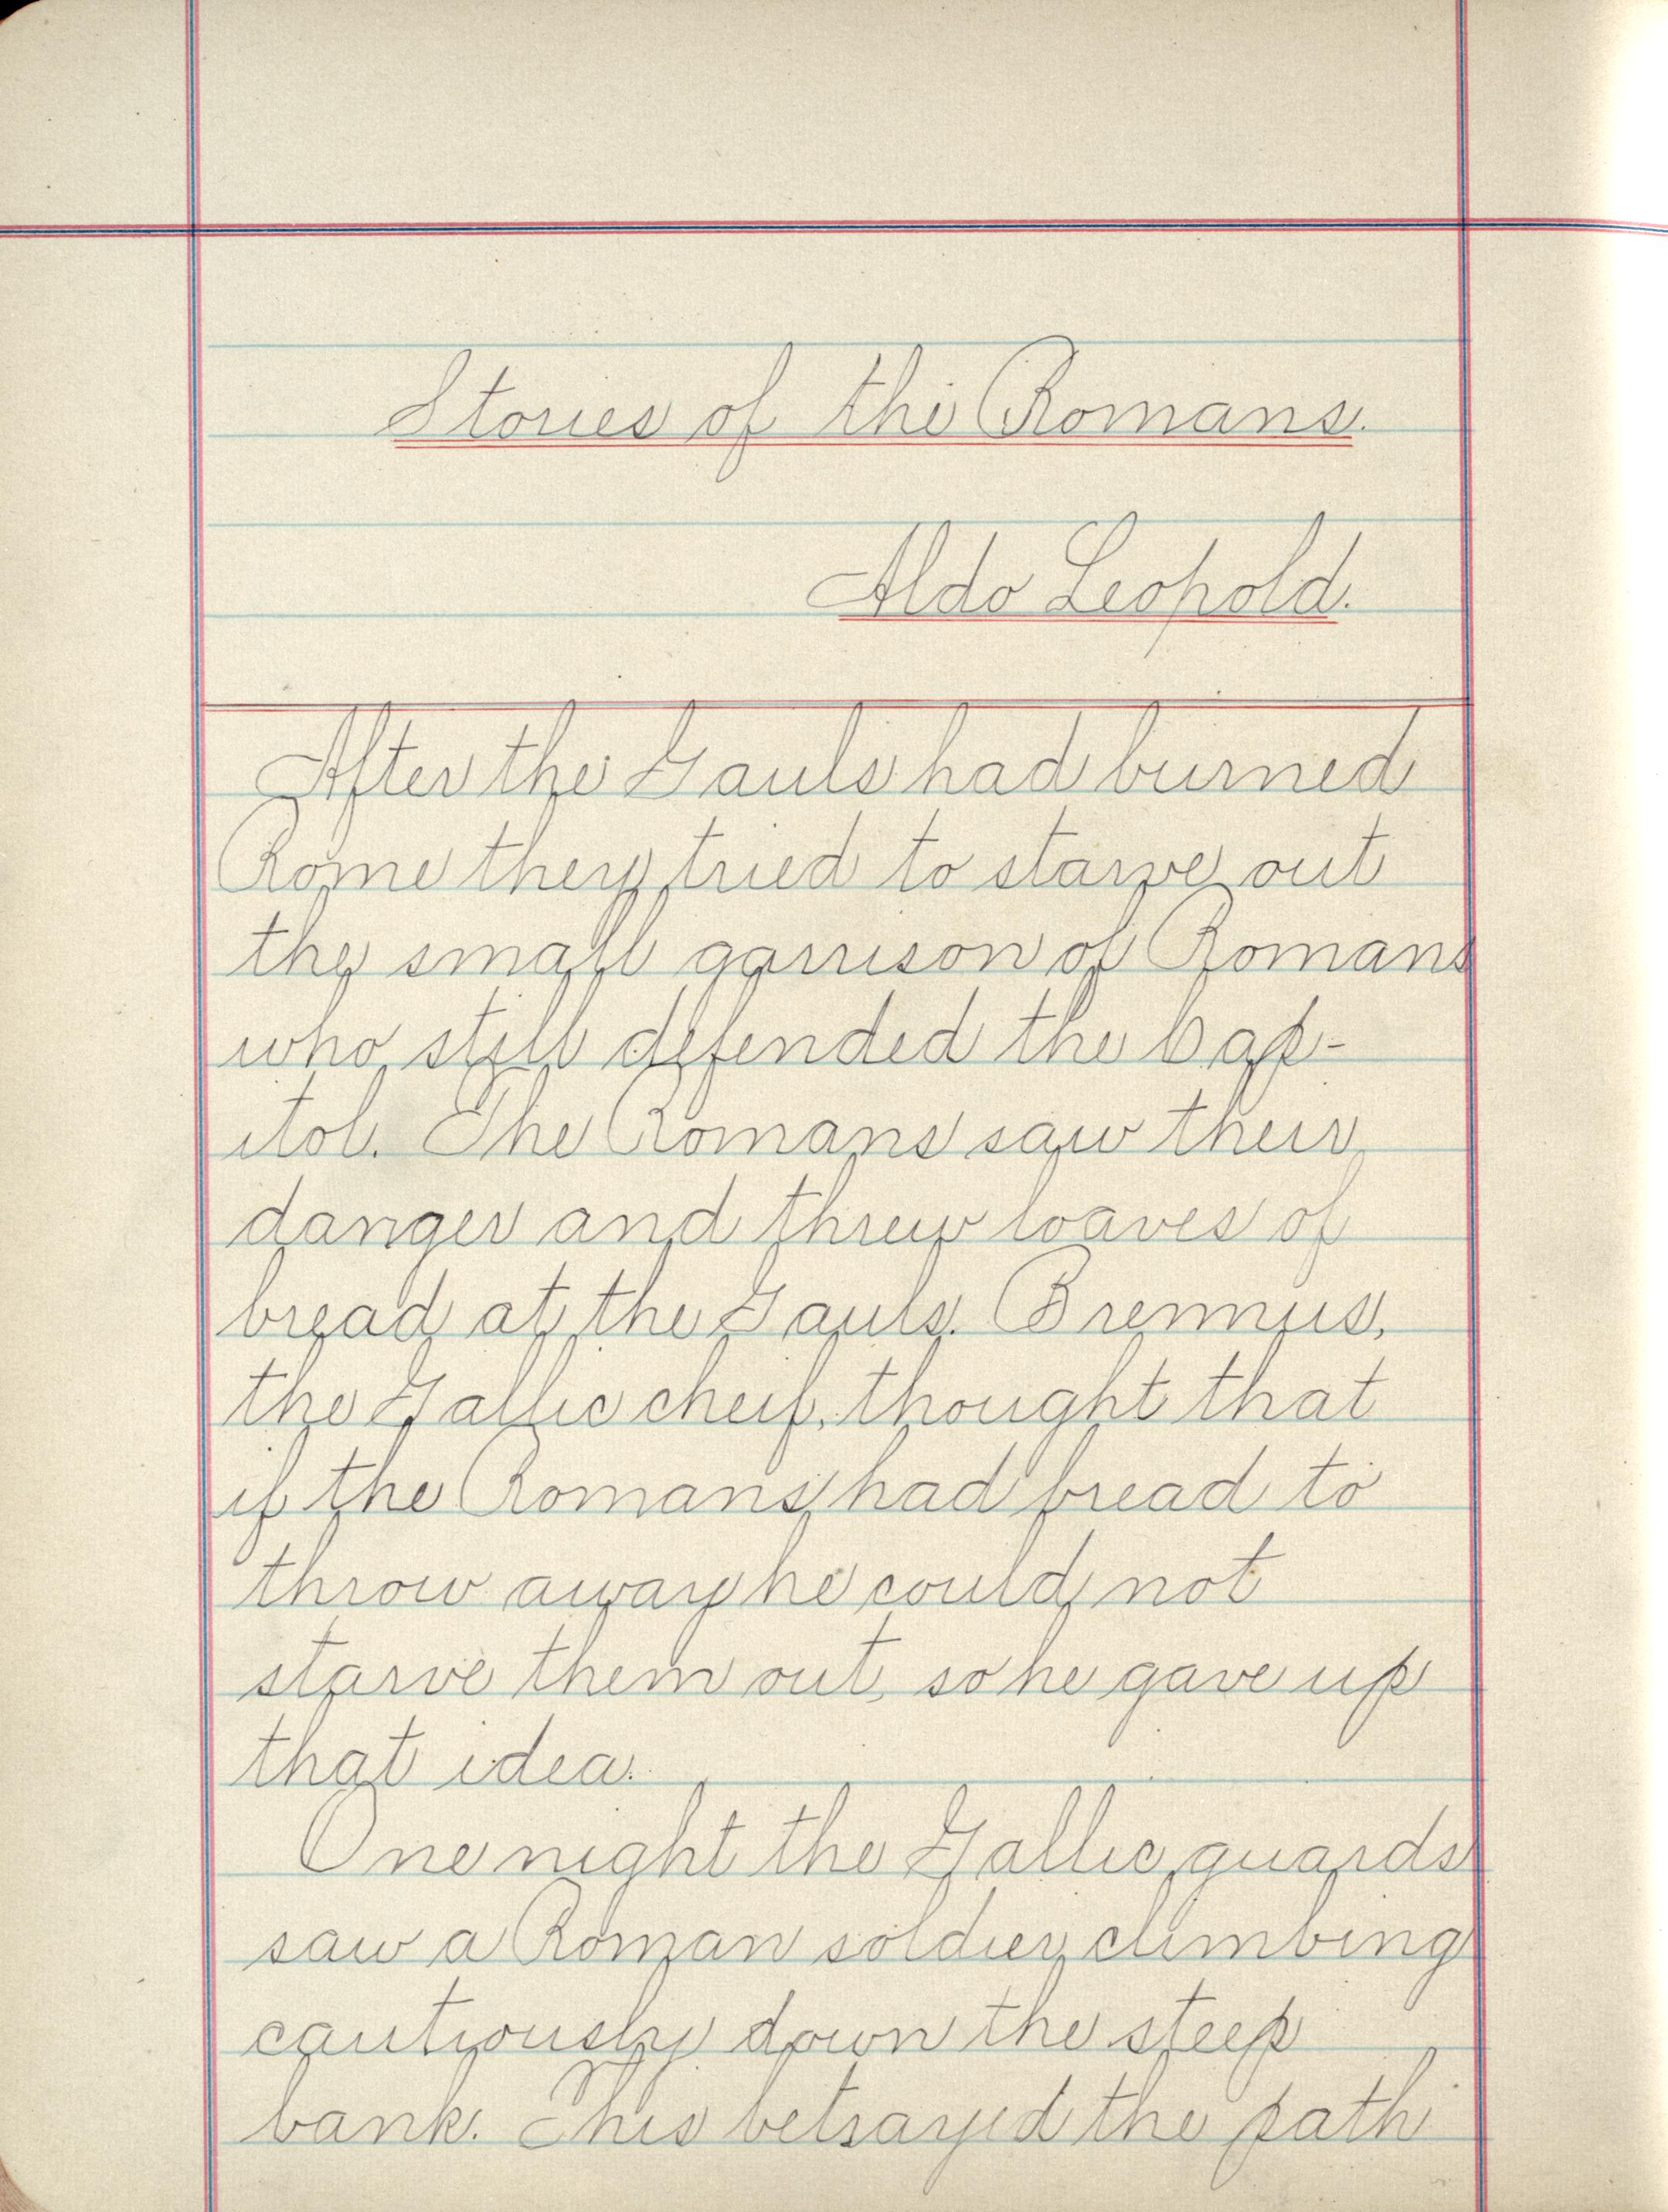 Stories of the Romans.
Aldo Leopold.
After the Gauls had burned
Rome they tried to starve out
the small garrison of Romans
who still defended the Cap-
itol. The Romans saw their
danger and threw loaves of
bread at the Gauls. Brennus,
the Gallic cheif, thought that
if the Romans had bread to
throw away he could not
starve them out, so he gave up
that idea.
One night the Gallic guards
saw a Roman soldier climbing
cautiously down the steep
bank. This betrayed the path